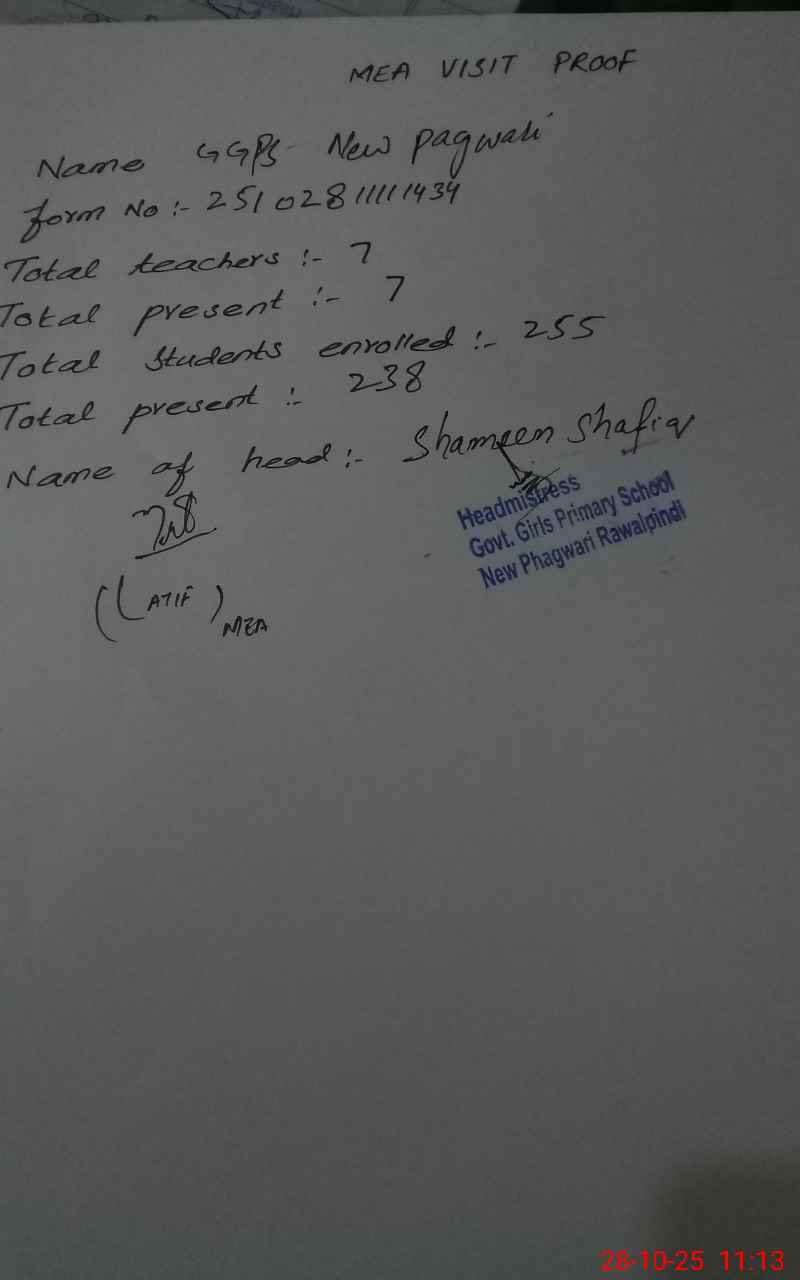 MEA VISIT PROOF
Name GGPS New Pagwari
form No :- 25102811111434
Total teachers :- 7
Total present :- 7
Total Students enrolled :- 255
Total present :- 238
Name of head :- Shameen Shafiq
Headmistress
Govt. Girls Primary School
New Phagwari Rawalpindi
(ATIF)
MEA
28-10-25 11:13